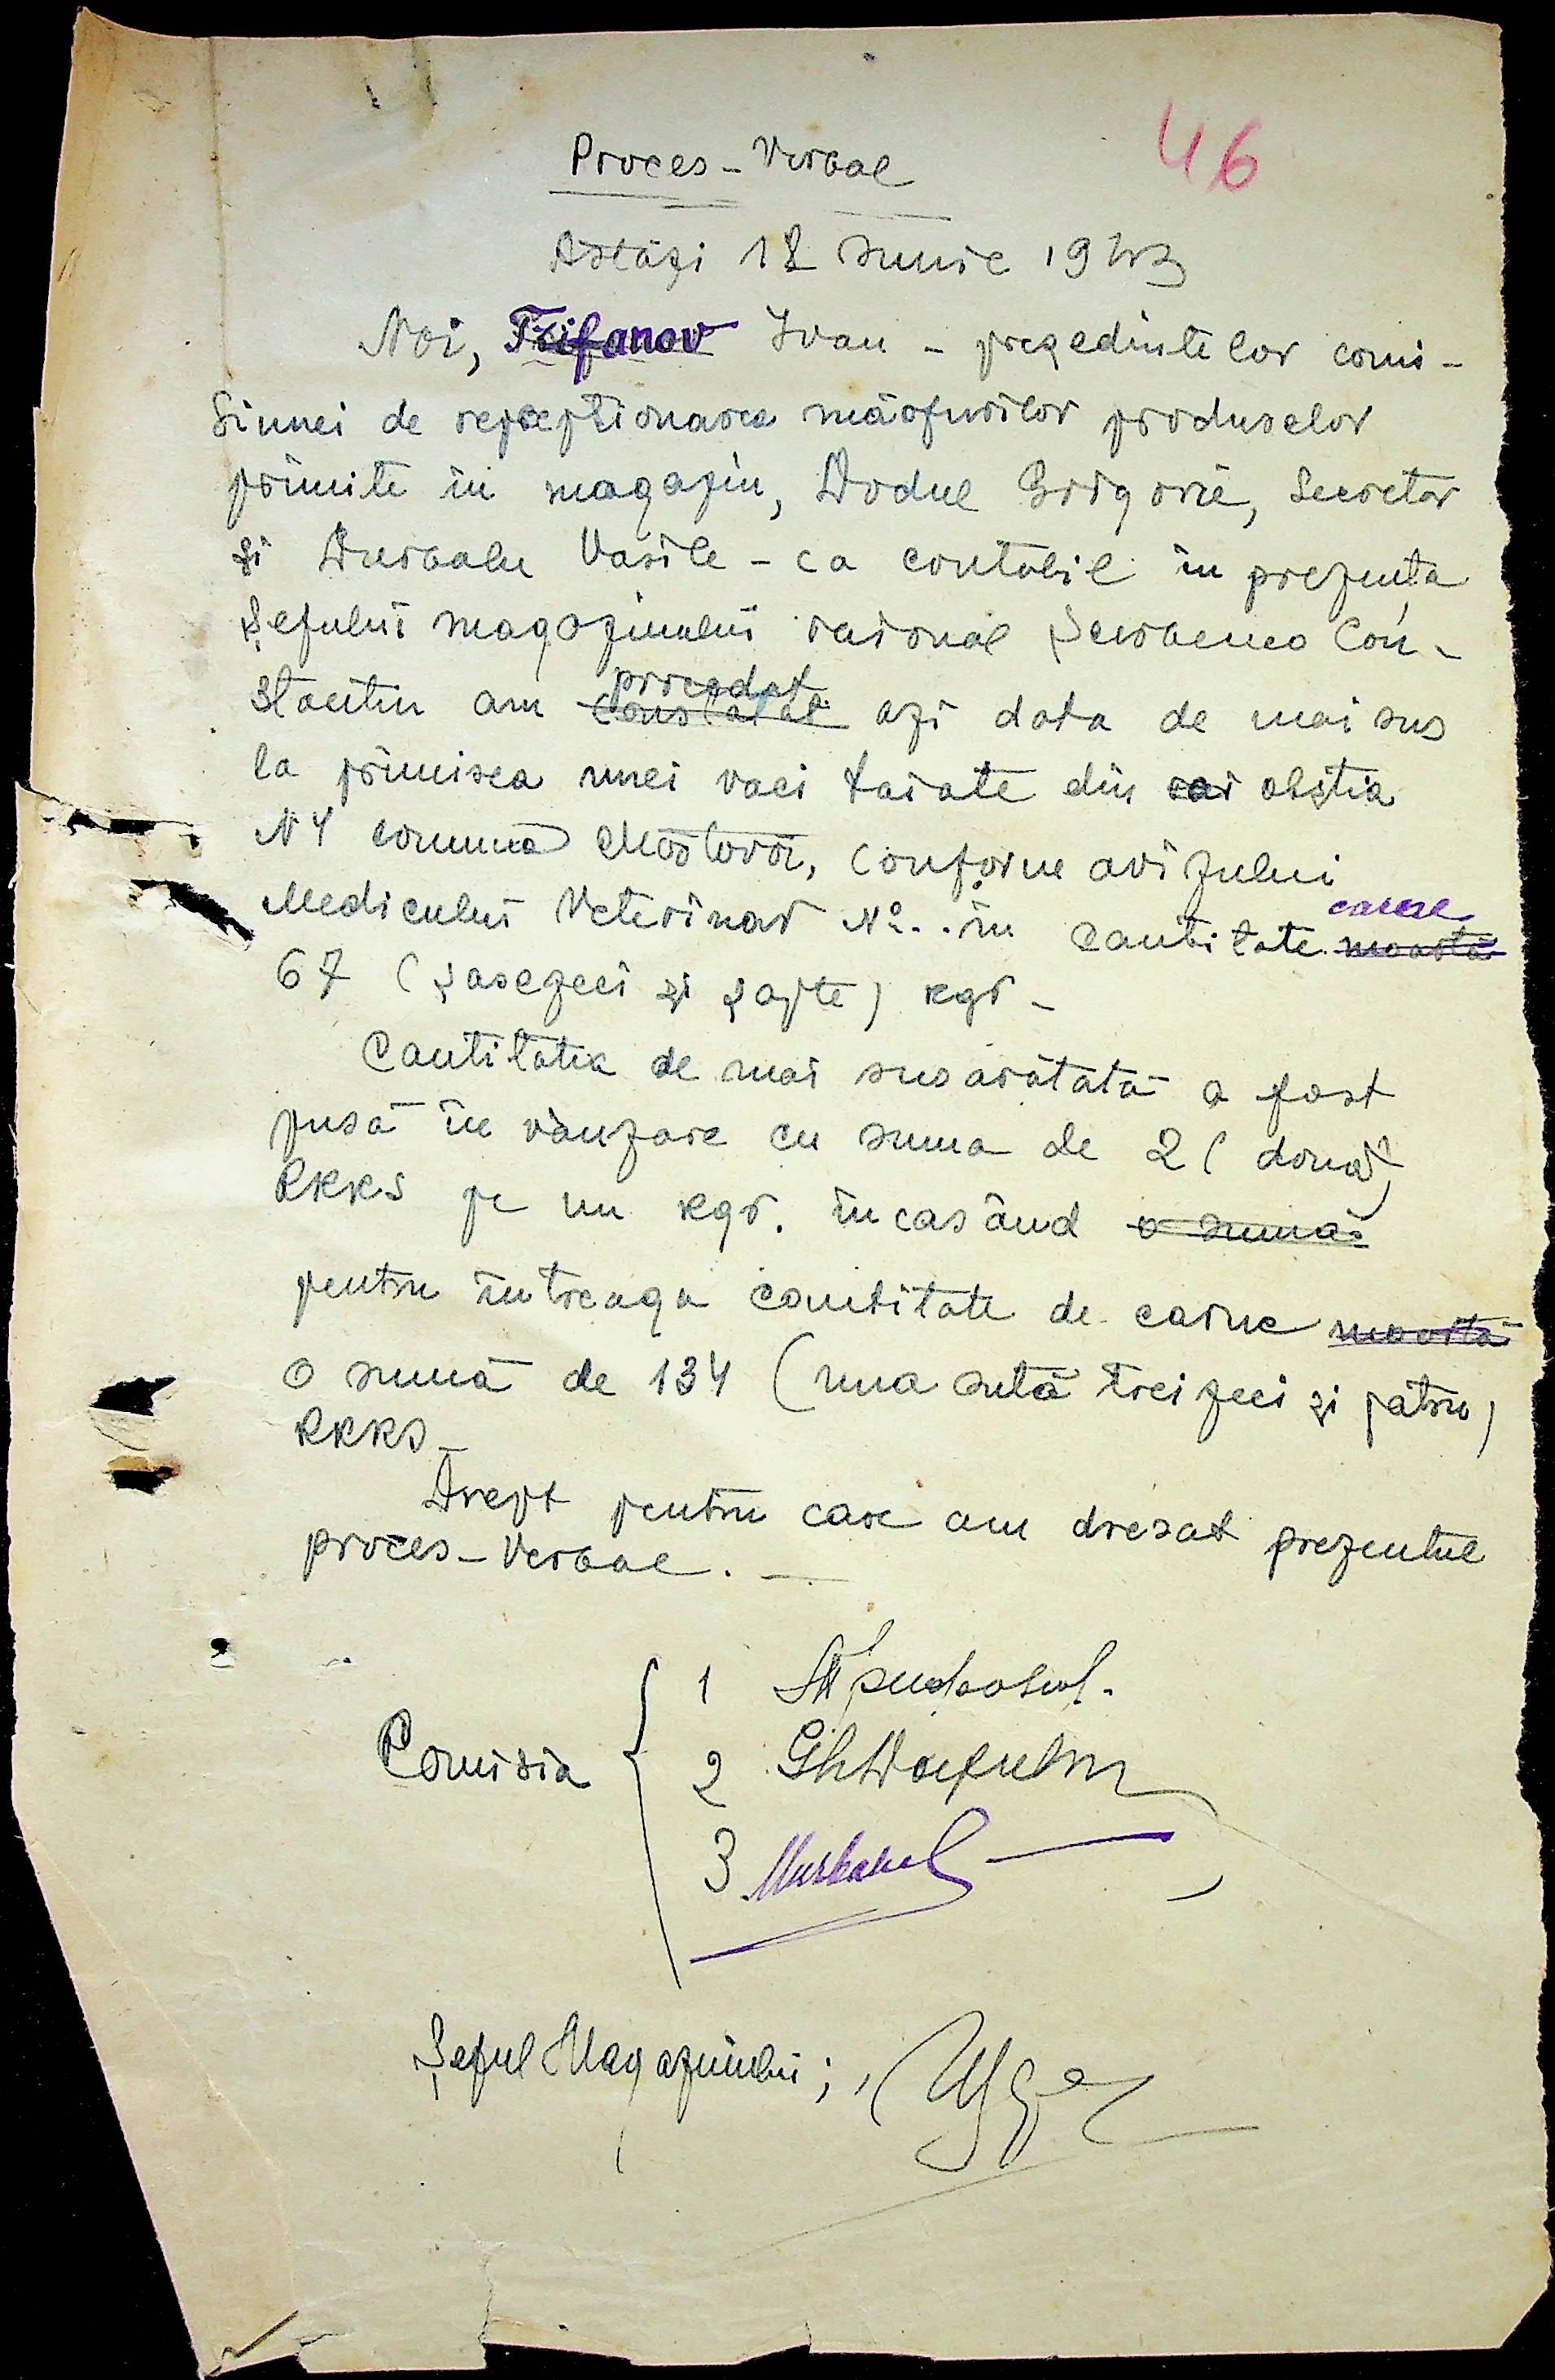 46
Proces-Verbal
Astăzi 12 Iunie 1943
Noi, Trifanov Ivan - prezedintelor comi-
siunei de repceptionarea mărfurilor produselor
primite in magazin, Dodul Grigorie, Secretar
și Durbalu Vasile - ca contabil in prezenta
Șefului magazinului raional Șcerbenco Con-
stantin am procedat azi data de mai sus
la primirea unei vaci taiate din obștia
N 4 comuna Mostovoi, conform avizului
Medicului Veterinar No.. in cantitate carne
67 (șasezeci și șapte) kgr -
Cantitatea de mai sus arătată a fost
pusă in vânzare cu suma de 2 (două)
RKKS pe un kgr. incasând
pentru intreaga cantitate de carne
o sumă de 134 (una sută treizeci și patru)
RKKS -
Drept pentru care am dresat prezentul
proces-verbal. -
Comisia
1
2
3
Șeful Magazinului;